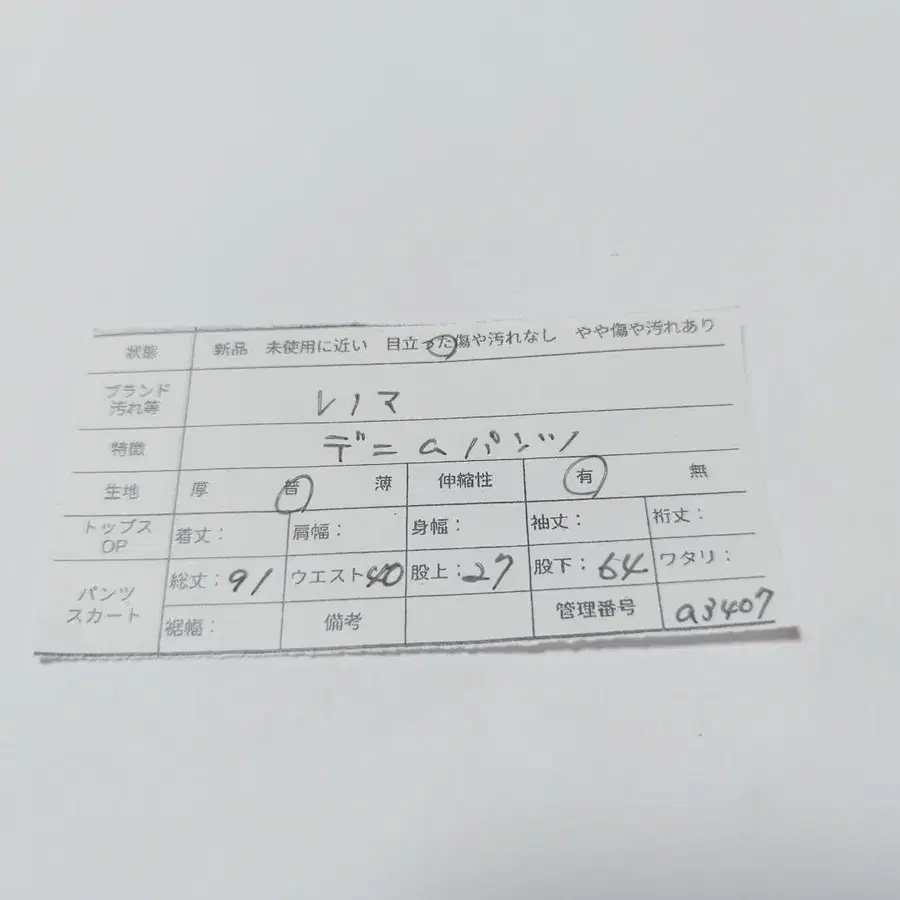 状態 新品 未使用に近い 目立った傷や汚れなし やや傷や汚れあり
ブランド
汚れ等 レノマ
特徴 デニムパンツ
生地 厚 普 薄 伸縮性 有 無
トップス
OP 着丈: 肩幅: 身幅: 袖丈: 裄丈:
パンツ
スカート 総丈:91 ウエスト40 股上:27 股下:64 ワタリ:
裾幅: 備考 管理番号 a3407